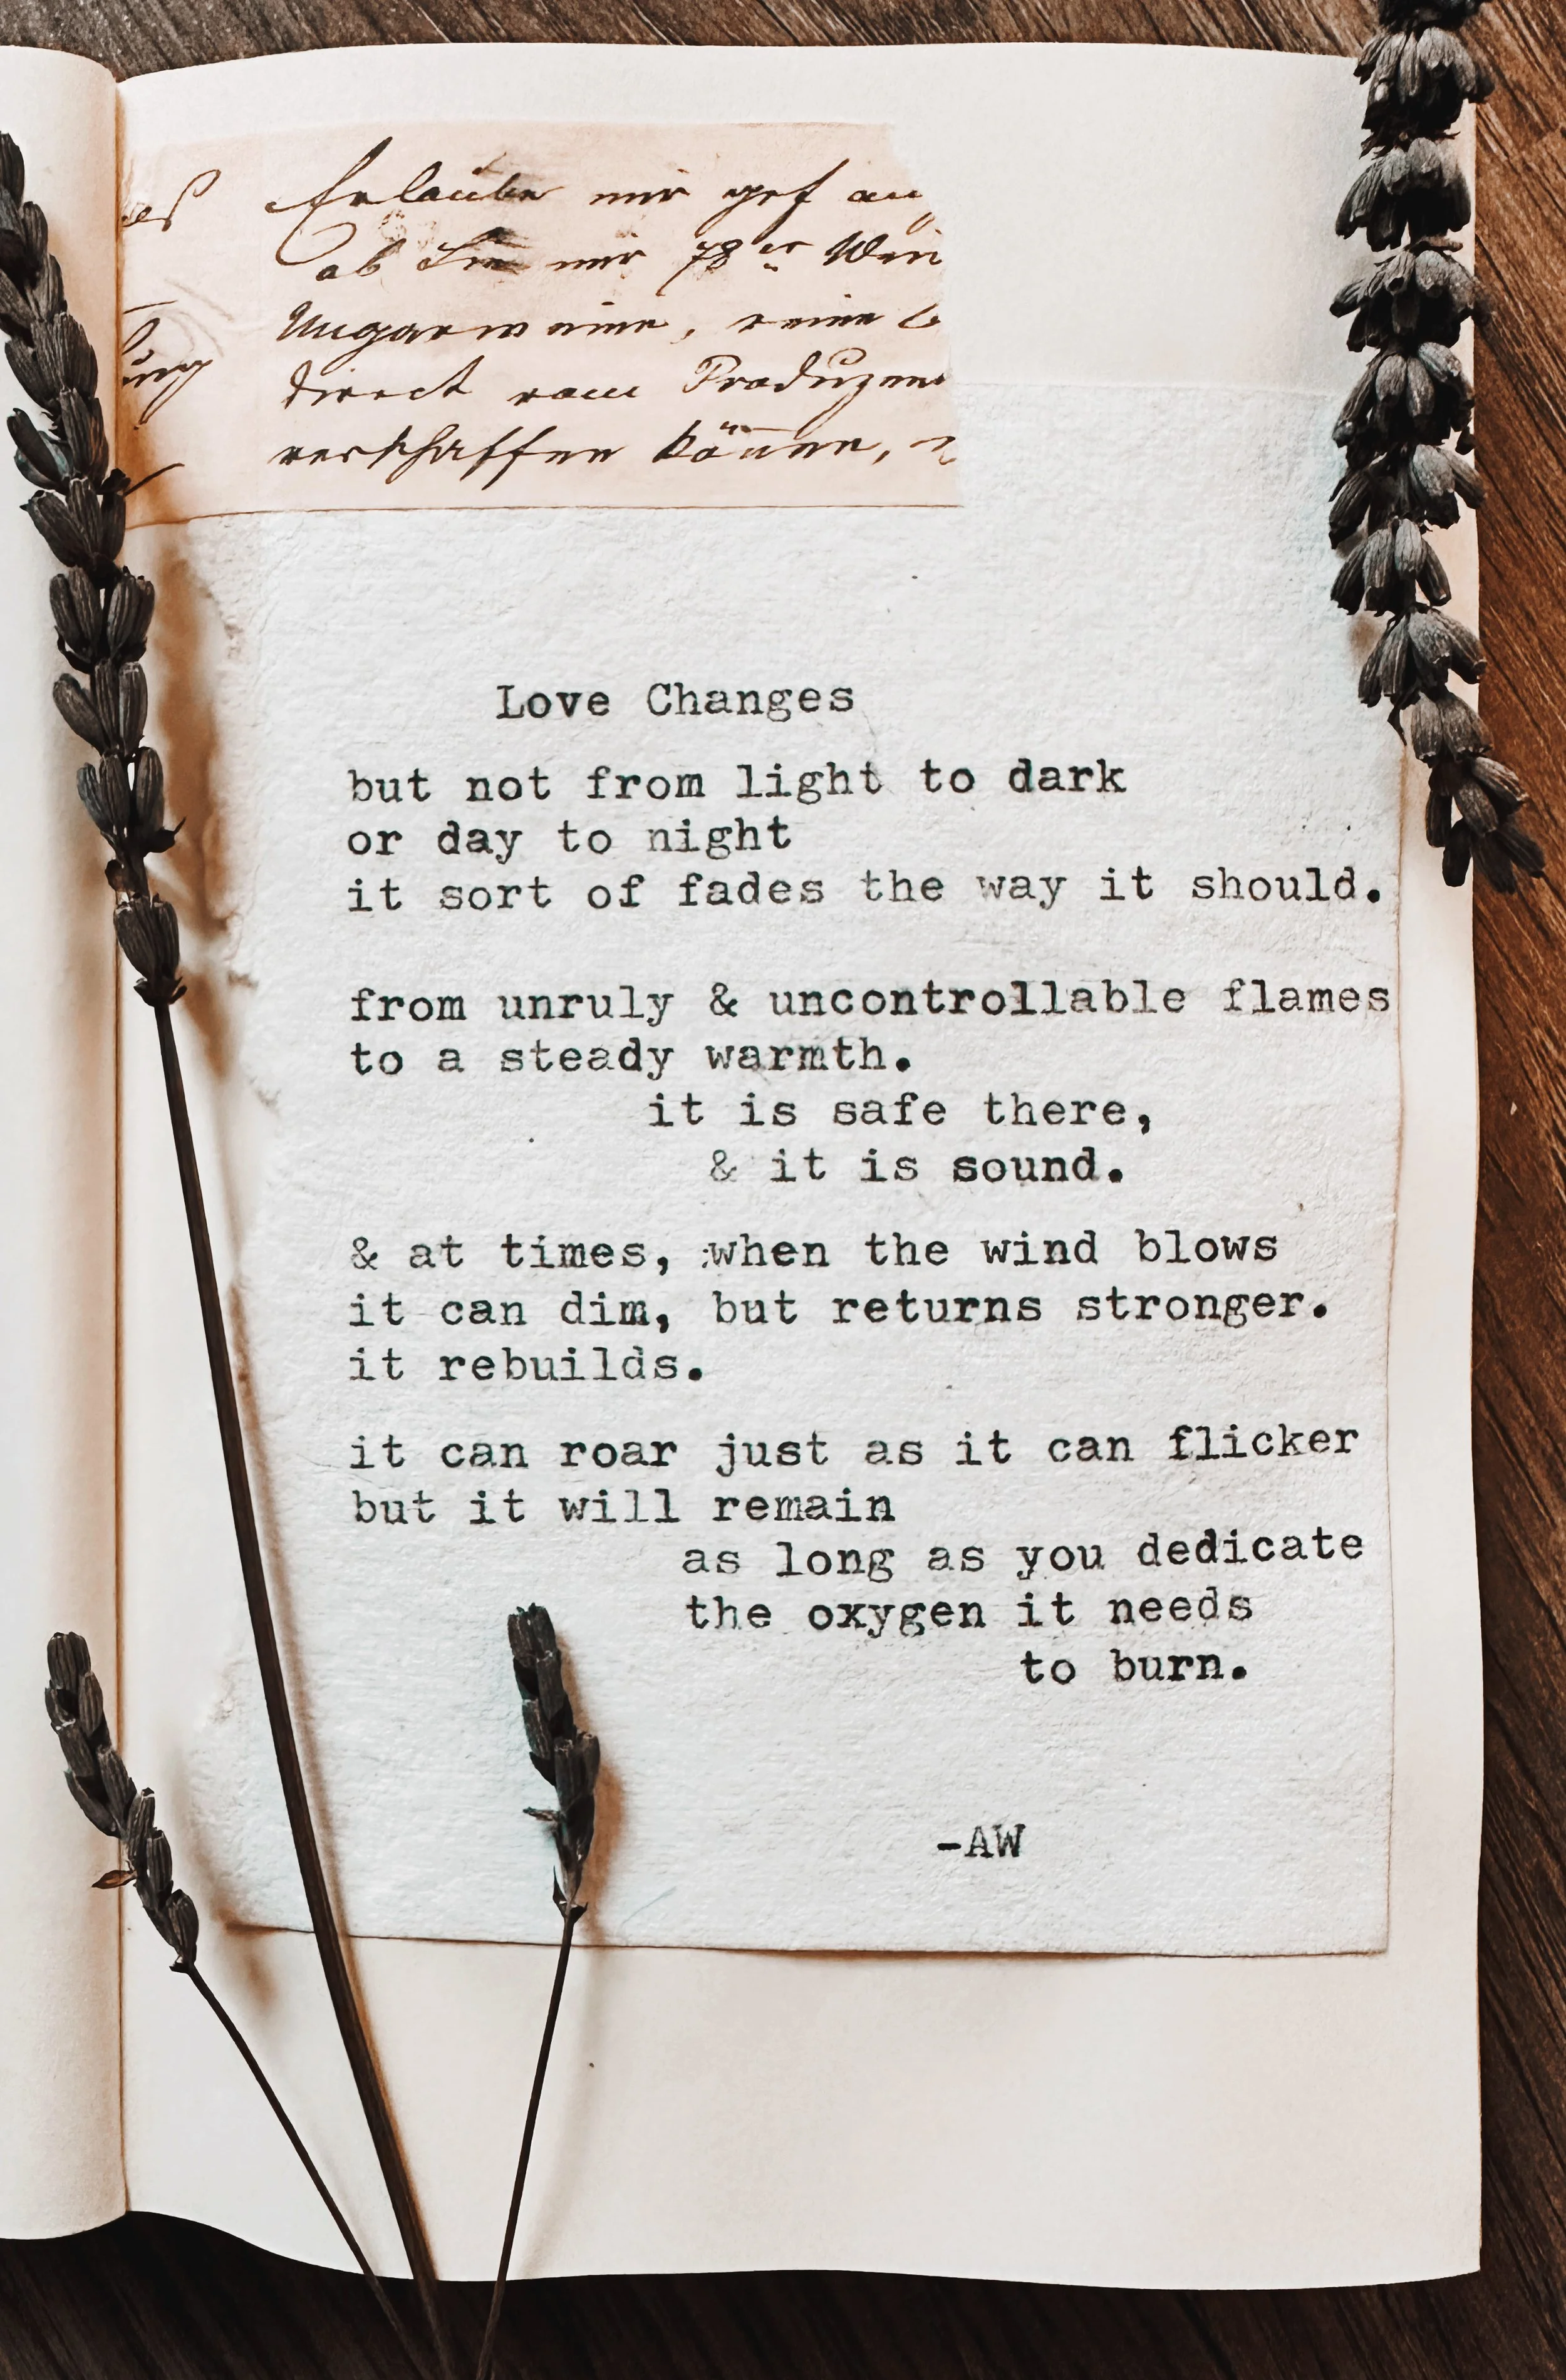 es
ung
Erlaube mir gef an
ob Sie mir 78er Wein
Ungarweine, reine
direct vom Produzen
verschaffen können,
Love Changes
but not from light to dark
or day to night
it sort of fades the way it should.
from unruly & uncontrollable flames
to a steady warmth.
it is safe there,
& it is sound.
& at times, when the wind blows
it can dim, but returns stronger.
it rebuilds.
it can roar just as it can flicker
but it will remain
as long as you dedicate
the oxygen it needs
to burn.
-AW